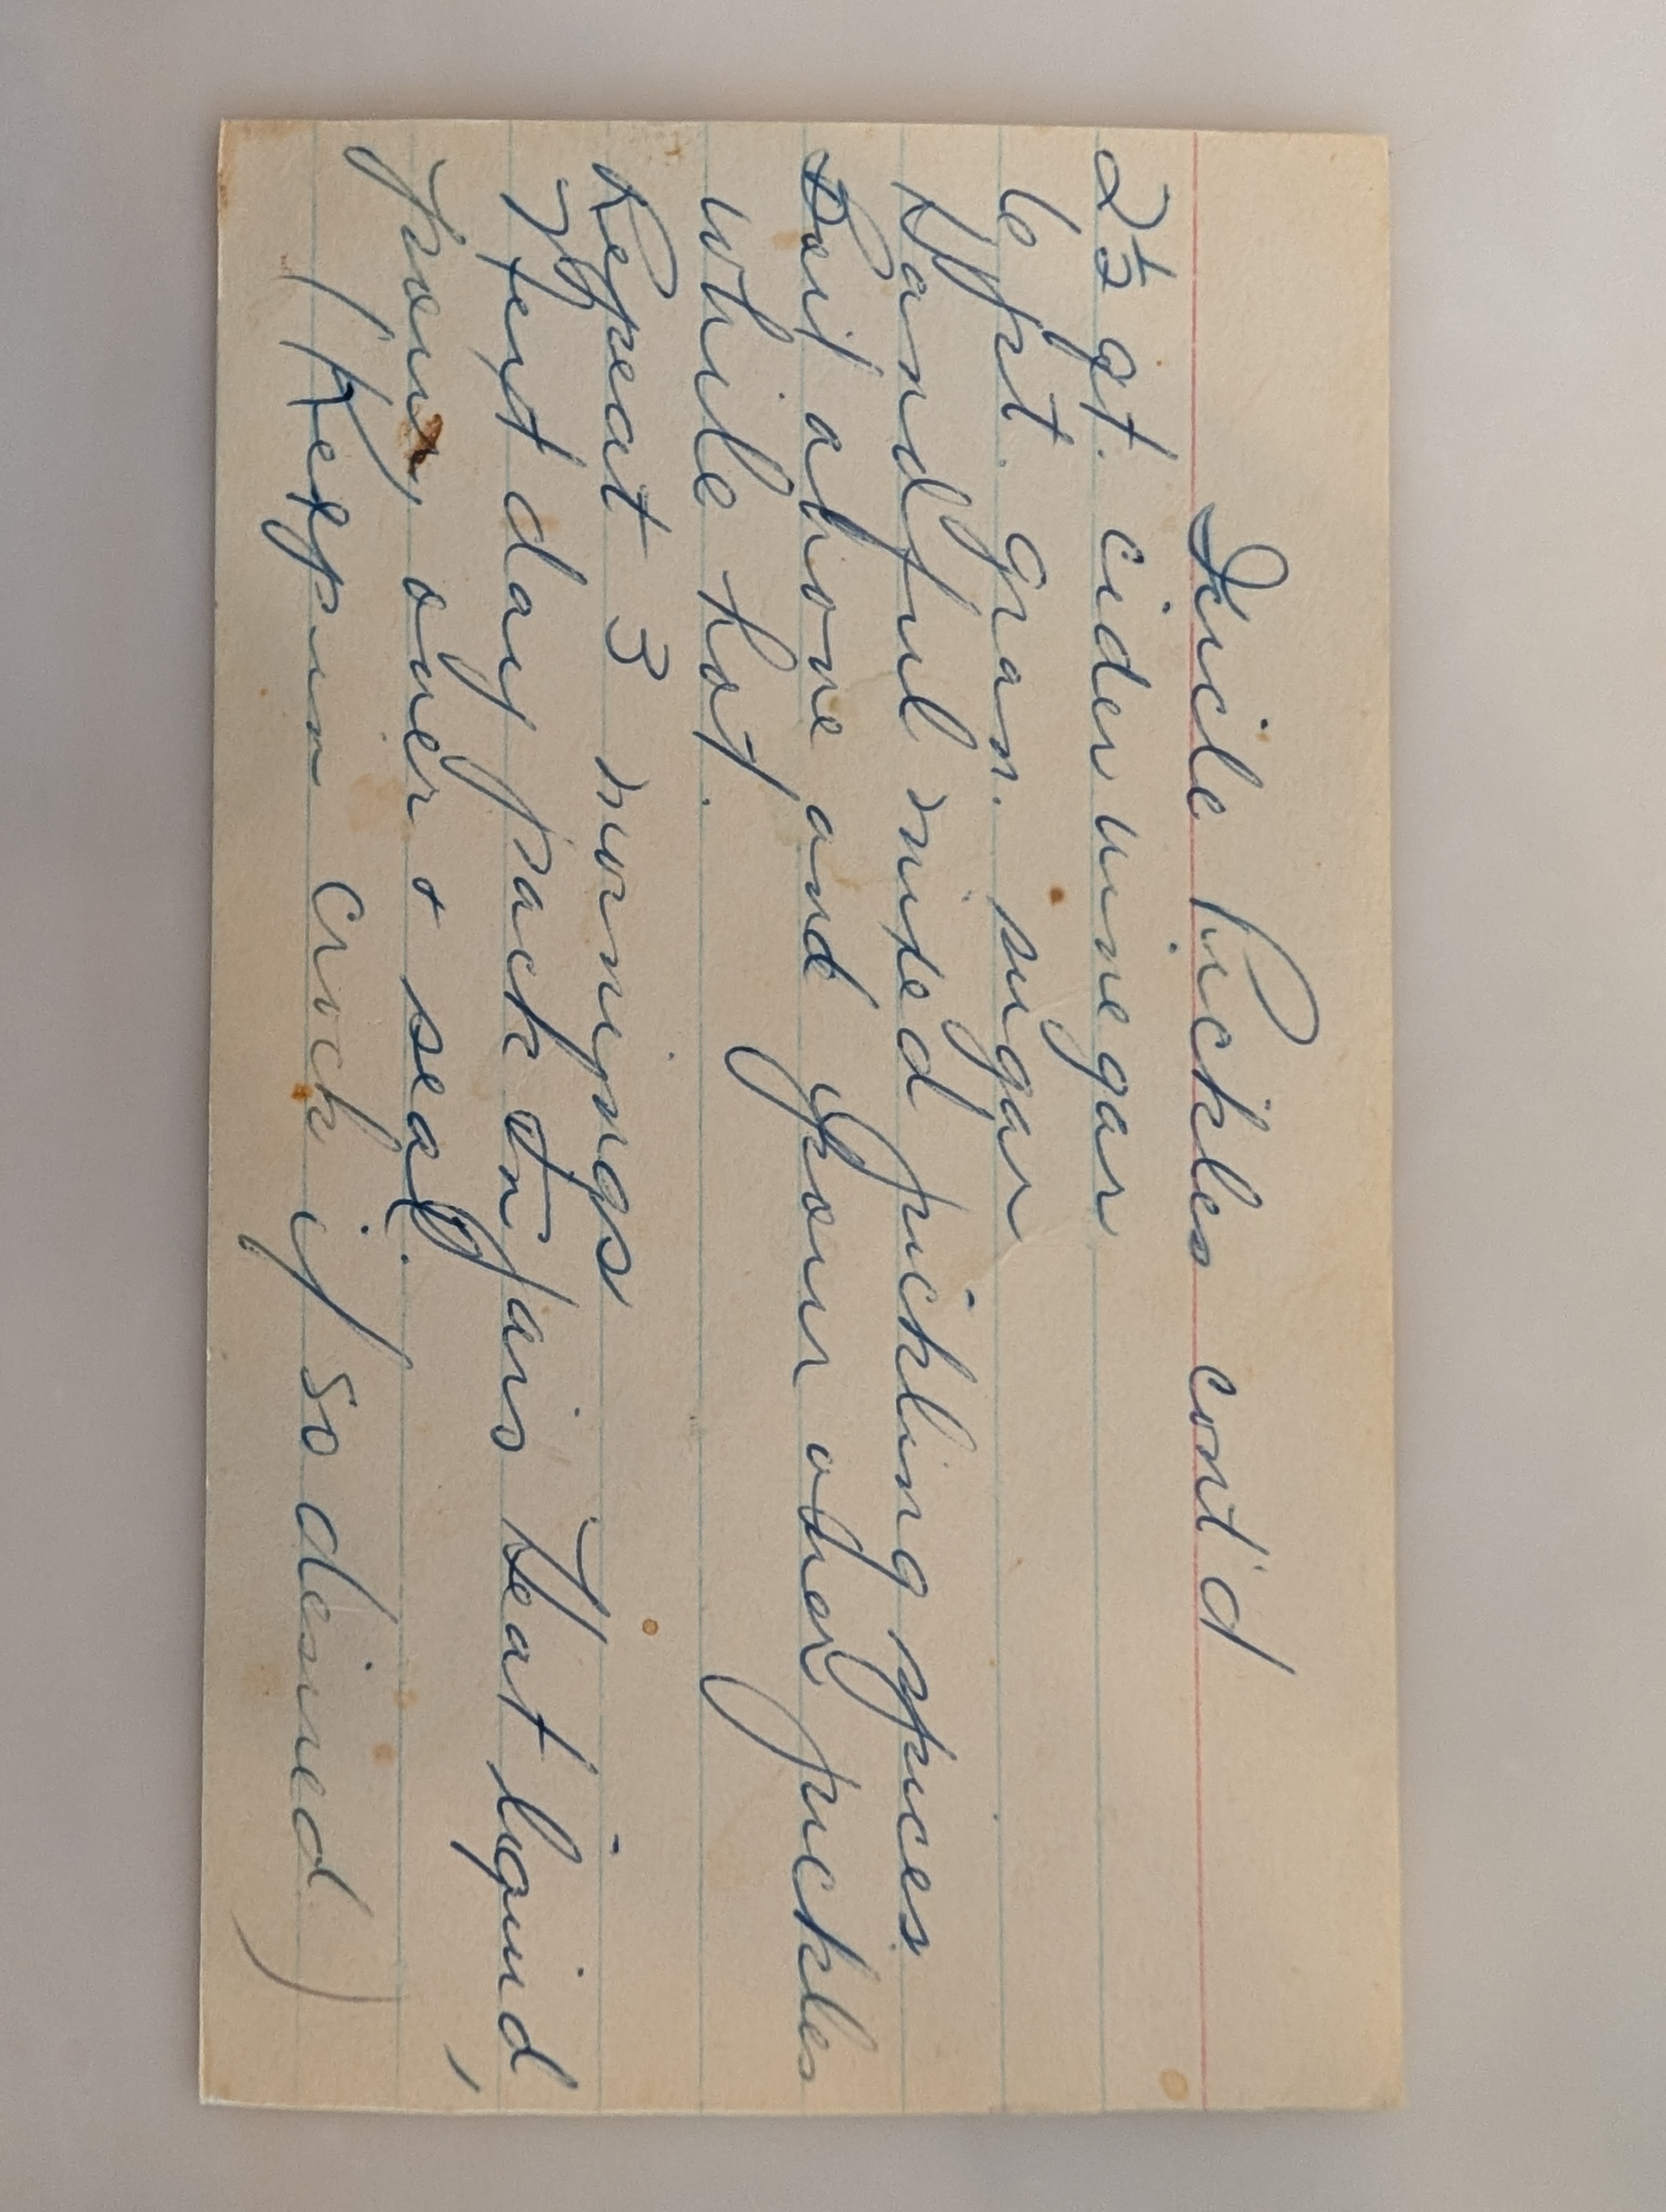 Icicle Pickles cont'd
2 1/2 qt. cider vinegar
6 pt. gran. sugar
Handful mixed pickling spices
Boil above and pour over pickles
while hot.
Repeat 3 mornings
Next day pack in jars Heat liquid,
pour over + seal.
(Keep in crock if so desired)